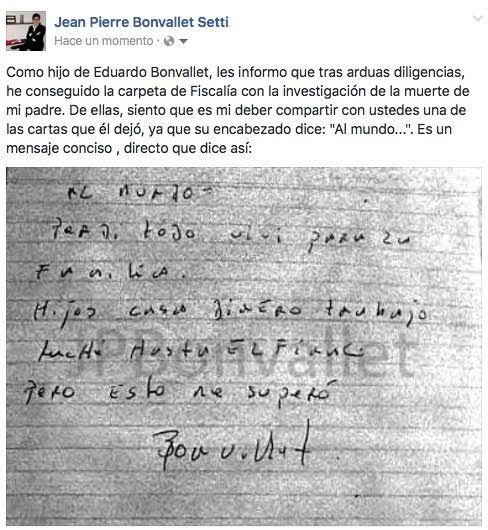 Jean Pierre Bonvallet Setti
Hace un momento ·
Como hijo de Eduardo Bonvallet, les informo que tras arduas diligencias,
he conseguido la carpeta de Fiscalía con la investigación de la muerte de
mi padre. De ellas, siento que es mi deber compartir con ustedes una de
las cartas que él dejó, ya que su encabezado dice: "Al mundo...". Es un
mensaje conciso , directo que dice así:
Al mundo-
Perdí todo viví para la
Familia.
Hijos casa Dinero trabajo
Luché Hasta El Final
JPBonvallet
Pero Esto me superó
Bonvallet